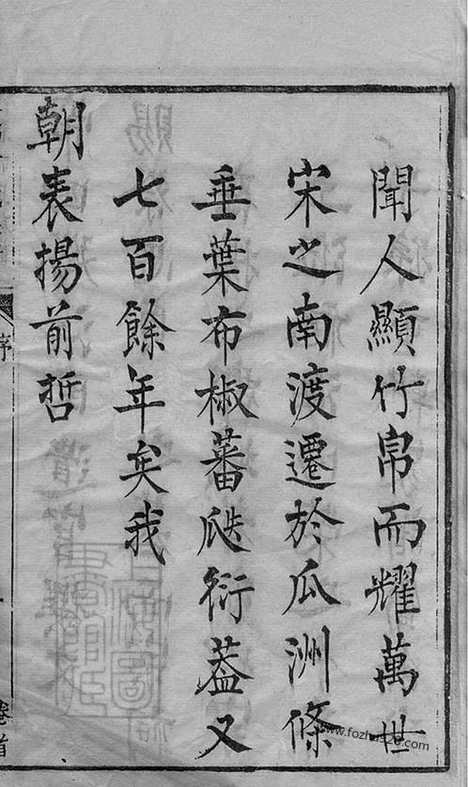 聞人顯竹帛而耀萬世
宋之南渡遷於瓜洲條
垂葉布椒蕃瓞衍蓋又
七百餘年矣我
朝表揚前哲
序
卷首
www.fozhu920.com